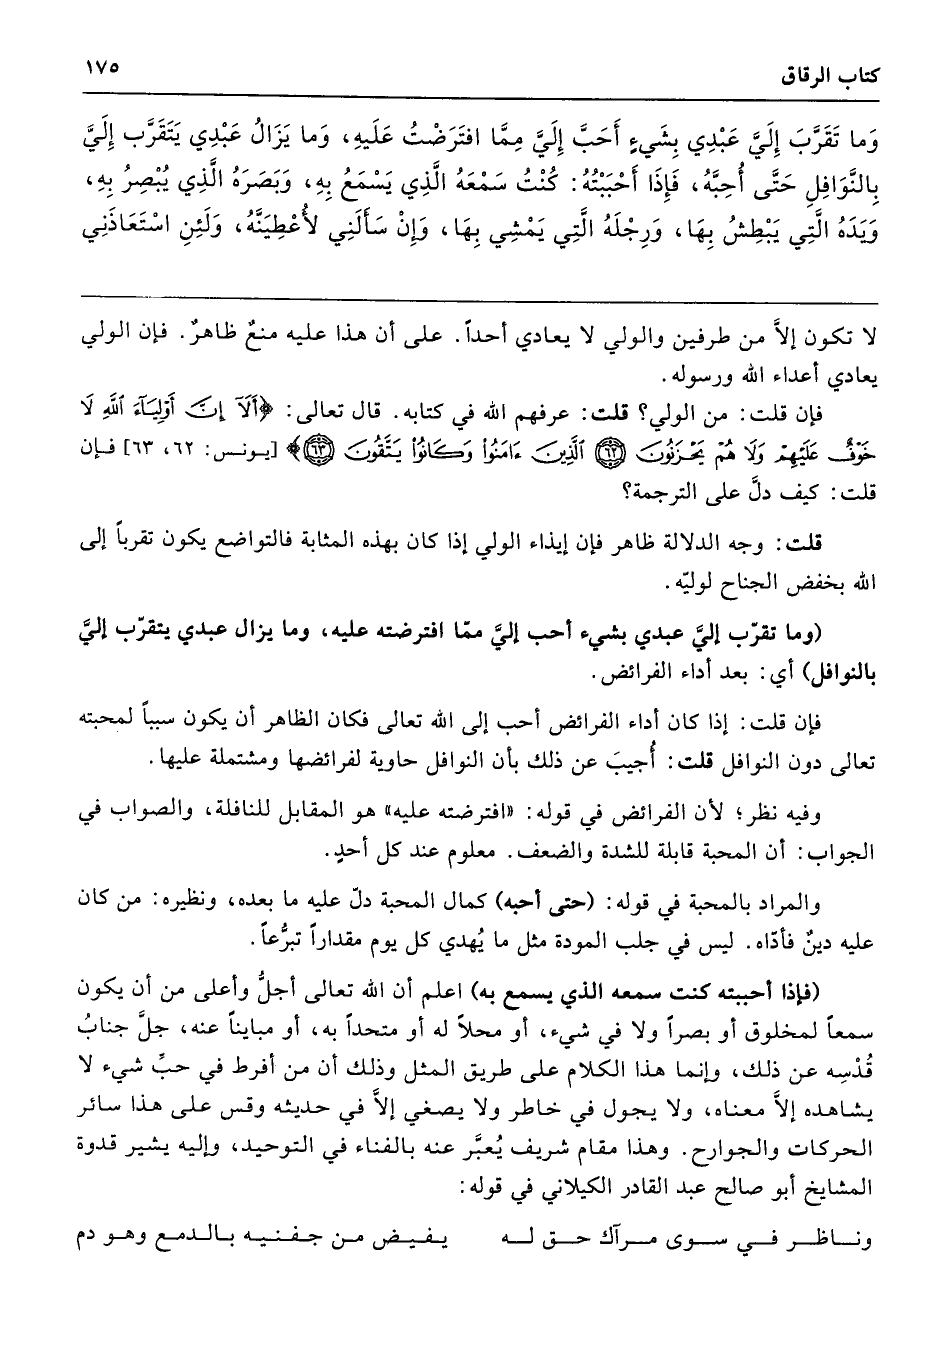 كتاب الرقاق ١٧٥
وَما تَقَرَّبَ إِلَيَّ عَبْدِي بِشَيءٍ أَحَبَّ إِلَيَّ مِمَّا افتَرَضْتُ عَلَيهِ، وَما يَزَالُ عَبْدِي يَتَقَرَّب إِلَيَّ
بِالنَّوَافِلِ حَتَّى أُحِبَّهُ، فَإِذَا أَحْبَبْتُهُ: كُنْتُ سَمْعَهُ الَّذِي يَسْمَعُ بِهِ، وَبَصَرَهُ الَّذِي يُبْصِرُ بِهِ،
وَيَدَهُ الَّتِي يَبْطِشُ بِهَا، وَرِجْلَهُ الَّتِي يَمْشِي بِهَا، وَإِنْ سَأَلَنِي لأُعْطِيَنَّهُ، وَلَئِنِ اسْتَعَاذَنِي
لا تكون إلاَّ من طرفين والولي لا يعادي أحداً. على أن هذا عليه منعٌ ظاهرٌ. فإن الولي
يعادي أعداء الله ورسوله.
فإن قلت: من الولي؟ قلت: عرفهم الله في كتابه. قال تعالى: ﴿أَلَآ إِنَّ أَوْلِيَآءَ ٱللَّهِ لَا
خَوْفٌ عَلَيْهِمْ وَلَا هُمْ يَحْزَنُونَ ﴿٦٢﴾ ٱلَّذِينَ ءَامَنُوا۟ وَكَانُوا۟ يَتَّقُونَ ﴿٦٣﴾﴾ [يونس: ٦٢، ٦٣] فإن
قلت: كيف دلَّ على الترجمة؟
قلت: وجه الدلالة ظاهر فإن إيذاء الولي إذا كان بهذه المثابة فالتواضع يكون تقرباً إلى
الله بخفض الجناح لوليّه.
(وما تقرّب إليَّ عبدي بشيء أحب إليَّ ممّا افترضته عليه، وما يزال عبدي يتقرّب إليَّ
بالنوافل) أي: بعد أداء الفرائض.
فإن قلت: إذا كان أداء الفرائض أحب إلى الله تعالى فكان الظاهر أن يكون سبباً لمحبته
تعالى دون النوافل قلت: أُجيبَ عن ذلك بأن النوافل حاوية لفرائضها ومشتملة عليها.
وفيه نظر؛ لأن الفرائض في قوله: «افترضته عليه» هو المقابل للنافلة، والصواب في
الجواب: أن المحبة قابلة للشدة والضعف. معلوم عند كل أحدٍ.
والمراد بالمحبة في قوله: (حتى أحبه) كمال المحبة دلّ عليه ما بعده، ونظيره: من كان
عليه دينٌ فأدّاه. ليس في جلب المودة مثل ما يُهدي كل يوم مقداراً تبرُّعاً.
(فإذا أحببته كنت سمعه الذي يسمع به) اعلم أن الله تعالى أجلُّ وأعلى من أن يكون
سمعاً لمخلوق أو بصراً ولا في شيء، أو محلاً له أو متحداً به، أو مبايناً عنه، جلَّ جنابُ
قُدْسِه عن ذلك، وإنما هذا الكلام على طريق المثل وذلك أن من أفرط في حبِّ شيء لا
يشاهده إلاَّ معناه، ولا يجول في خاطر ولا يصغي إلاَّ في حديثه وقس على هذا سائر
الحركات والجوارح. وهذا مقام شريف يُعبَّر عنه بالفناء في التوحيد، وإليه يشير قدوة
المشايخ أبو صالح عبد القادر الكيلاني في قوله:
ونـاظـر فـي سـوى مـرآك حـق لـه يـفـيـض مـن جـفـنـيـه بـالـدمـع وهـو دم